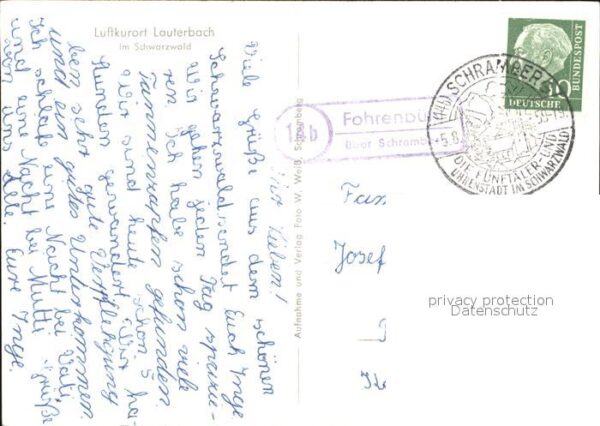 Luftkurort Lauterbach
im Schwarzwald
Ihr Lieben!
Viele Grüße aus dem schönen
Schwarzwald sendet Euch Inge.
Wir gehen jeden Tag spazie-
ren. Ich habe schon viele
Tannenzapfen gefunden.
Wir sind heute schon 5
Stunden gewandert. Wir ha-
ben sehr gute Verpflegung
und ein gutes Unterkommen.
Ich schlafe eine Nacht bei Vati
und eine Nacht bei Mutti. Grüße
von uns Alle. Eure Inge.
Aufnahme und Verlag Foto W. Weiß, Schramberg
Fohrenbü
über Schramber
SCHRAMBERG
5.8.
DIE FÜNFTÄLER- UND
UHRENSTADT IM SCHWARZWALD
DEUTSCHE
BUNDESPOST
10
Fam
Josef
privacy protection
Datenschutz